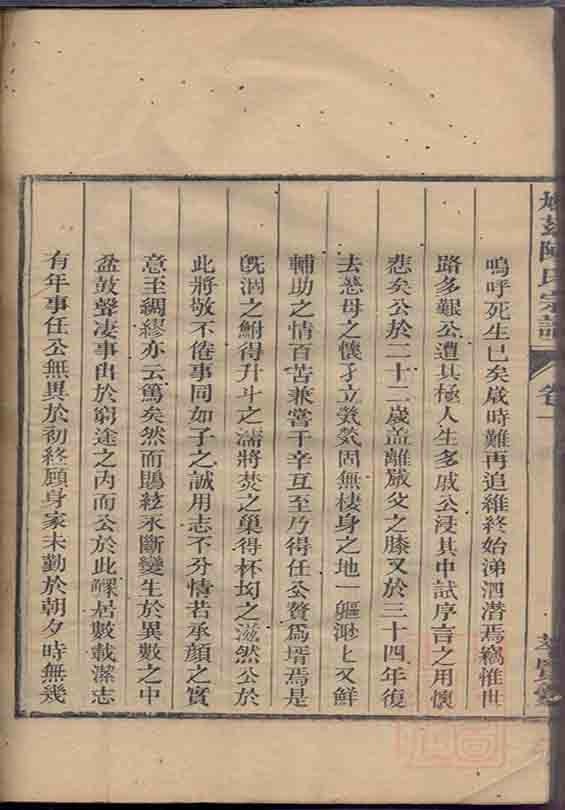 陳氏宗譜
卷一
嗚呼死生已矣歲時難再追維終始涕泗潸焉竊惟世
路多艱公遭其極人生多戚公浸其中試序言之用懷
悲矣公於二十二歲盖離嚴父之膝又於三十四年復
去慈母之懷孑立煢煢固無棲身之地一軀渺匕又鮮
輔助之情百苦兼嘗千辛互至乃得任公贅為壻焉是
旣涸之鮒得升斗之濡將焚之巢得杯㘭之滋然公於
此將敬不倦事同如子之誠用志不分情若承顔之實
意至綢繆亦云篤矣然而鵾絃永斷變生於異數之中
盆鼓聲凄事出於窮途之內而公於此鰥居數載潔志
有年事任公無異於初終顧身家未勤於朝夕時無幾